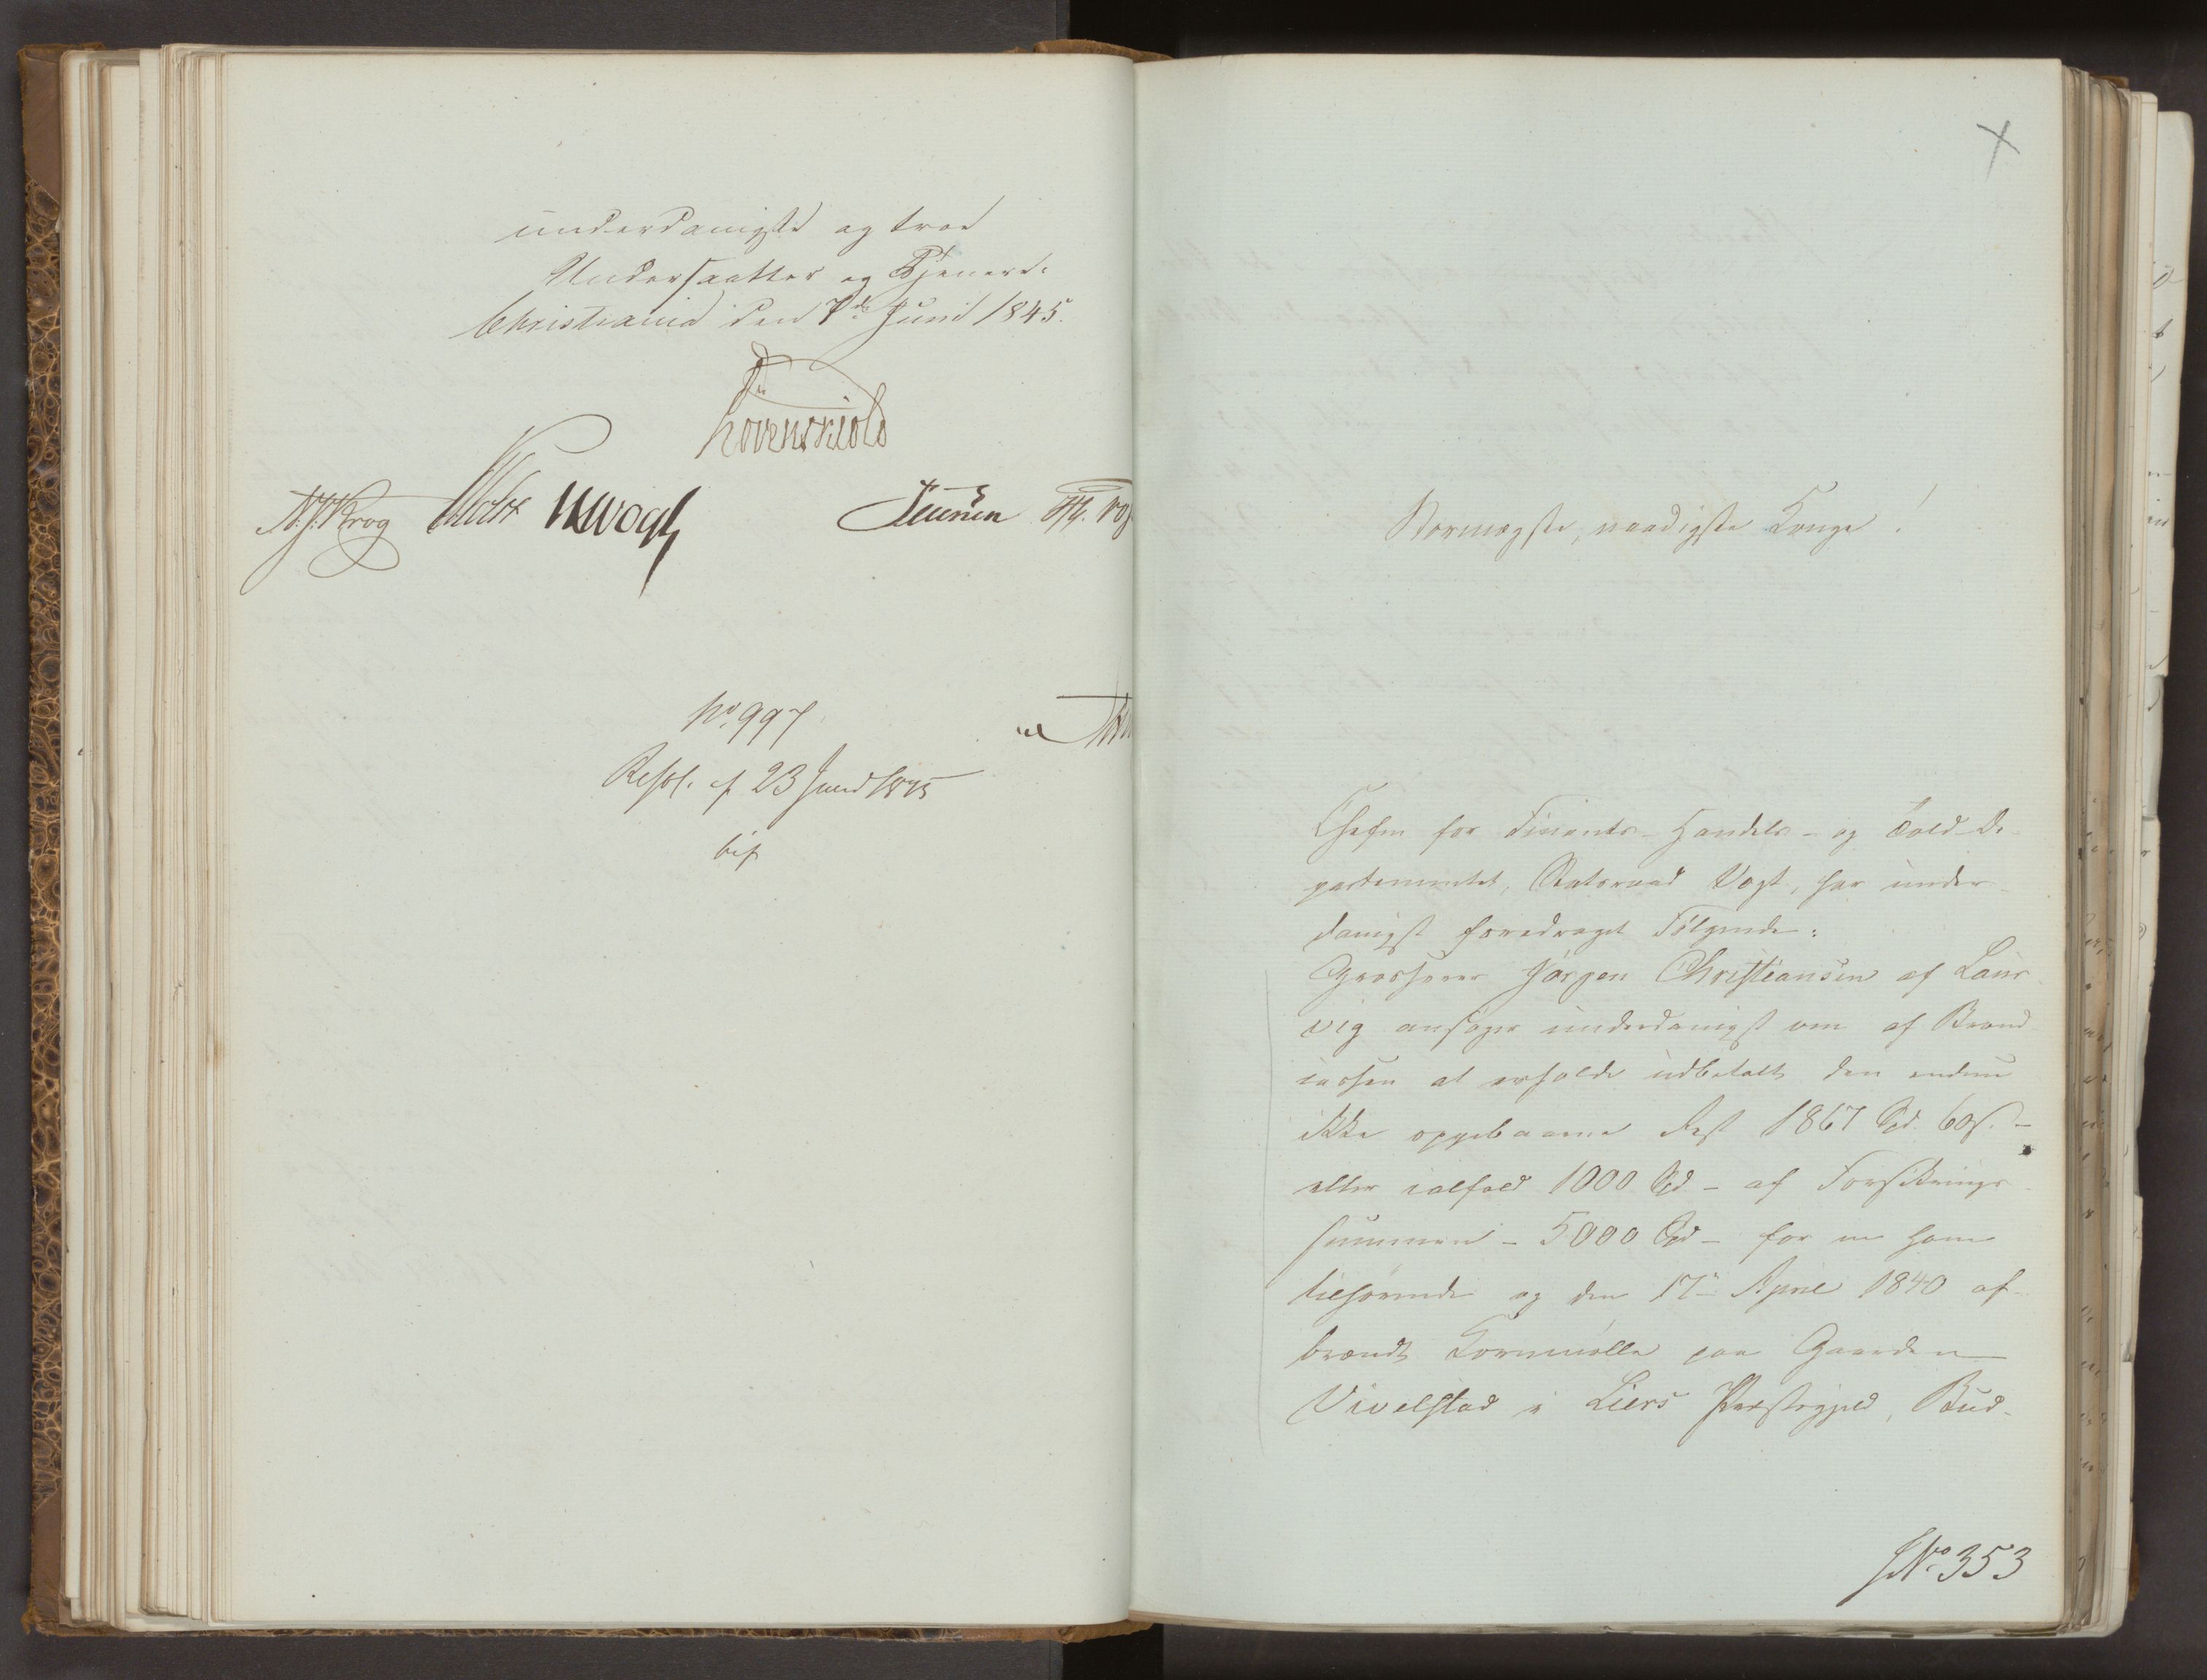 underdanigste og troe
Undersaatter og Tjenere.
Christiania den 7de Juni 1845.
Løvenskiold
N.J. Krog Holst Vogt
Petersen
No. 997
Resol. af 23 Juni 1845
Stormægtigste, naadigste Konge!
Chefen for Finants- Handels- og Told De-
partementet, Statsraad Vogt, har under-
danigst foredraget Følgende:
Grosserer Jørgen Christiansen af Laur-
vig ansøger underdanigst om af Brand-
cassen at erholde udbetalt den endnu
ikke oppebaarne Rest 1867 Spd. 60 s. -
eller ialfald 1000 Spd - af Forsikrings
summen - 5000 Spd - for en ham
tilhørende og den 17de April 1840 af-
brændt Kornmølle paa Gaarden
Vivelstad i Liers Præstegjeld, Bud-
JNo. 353